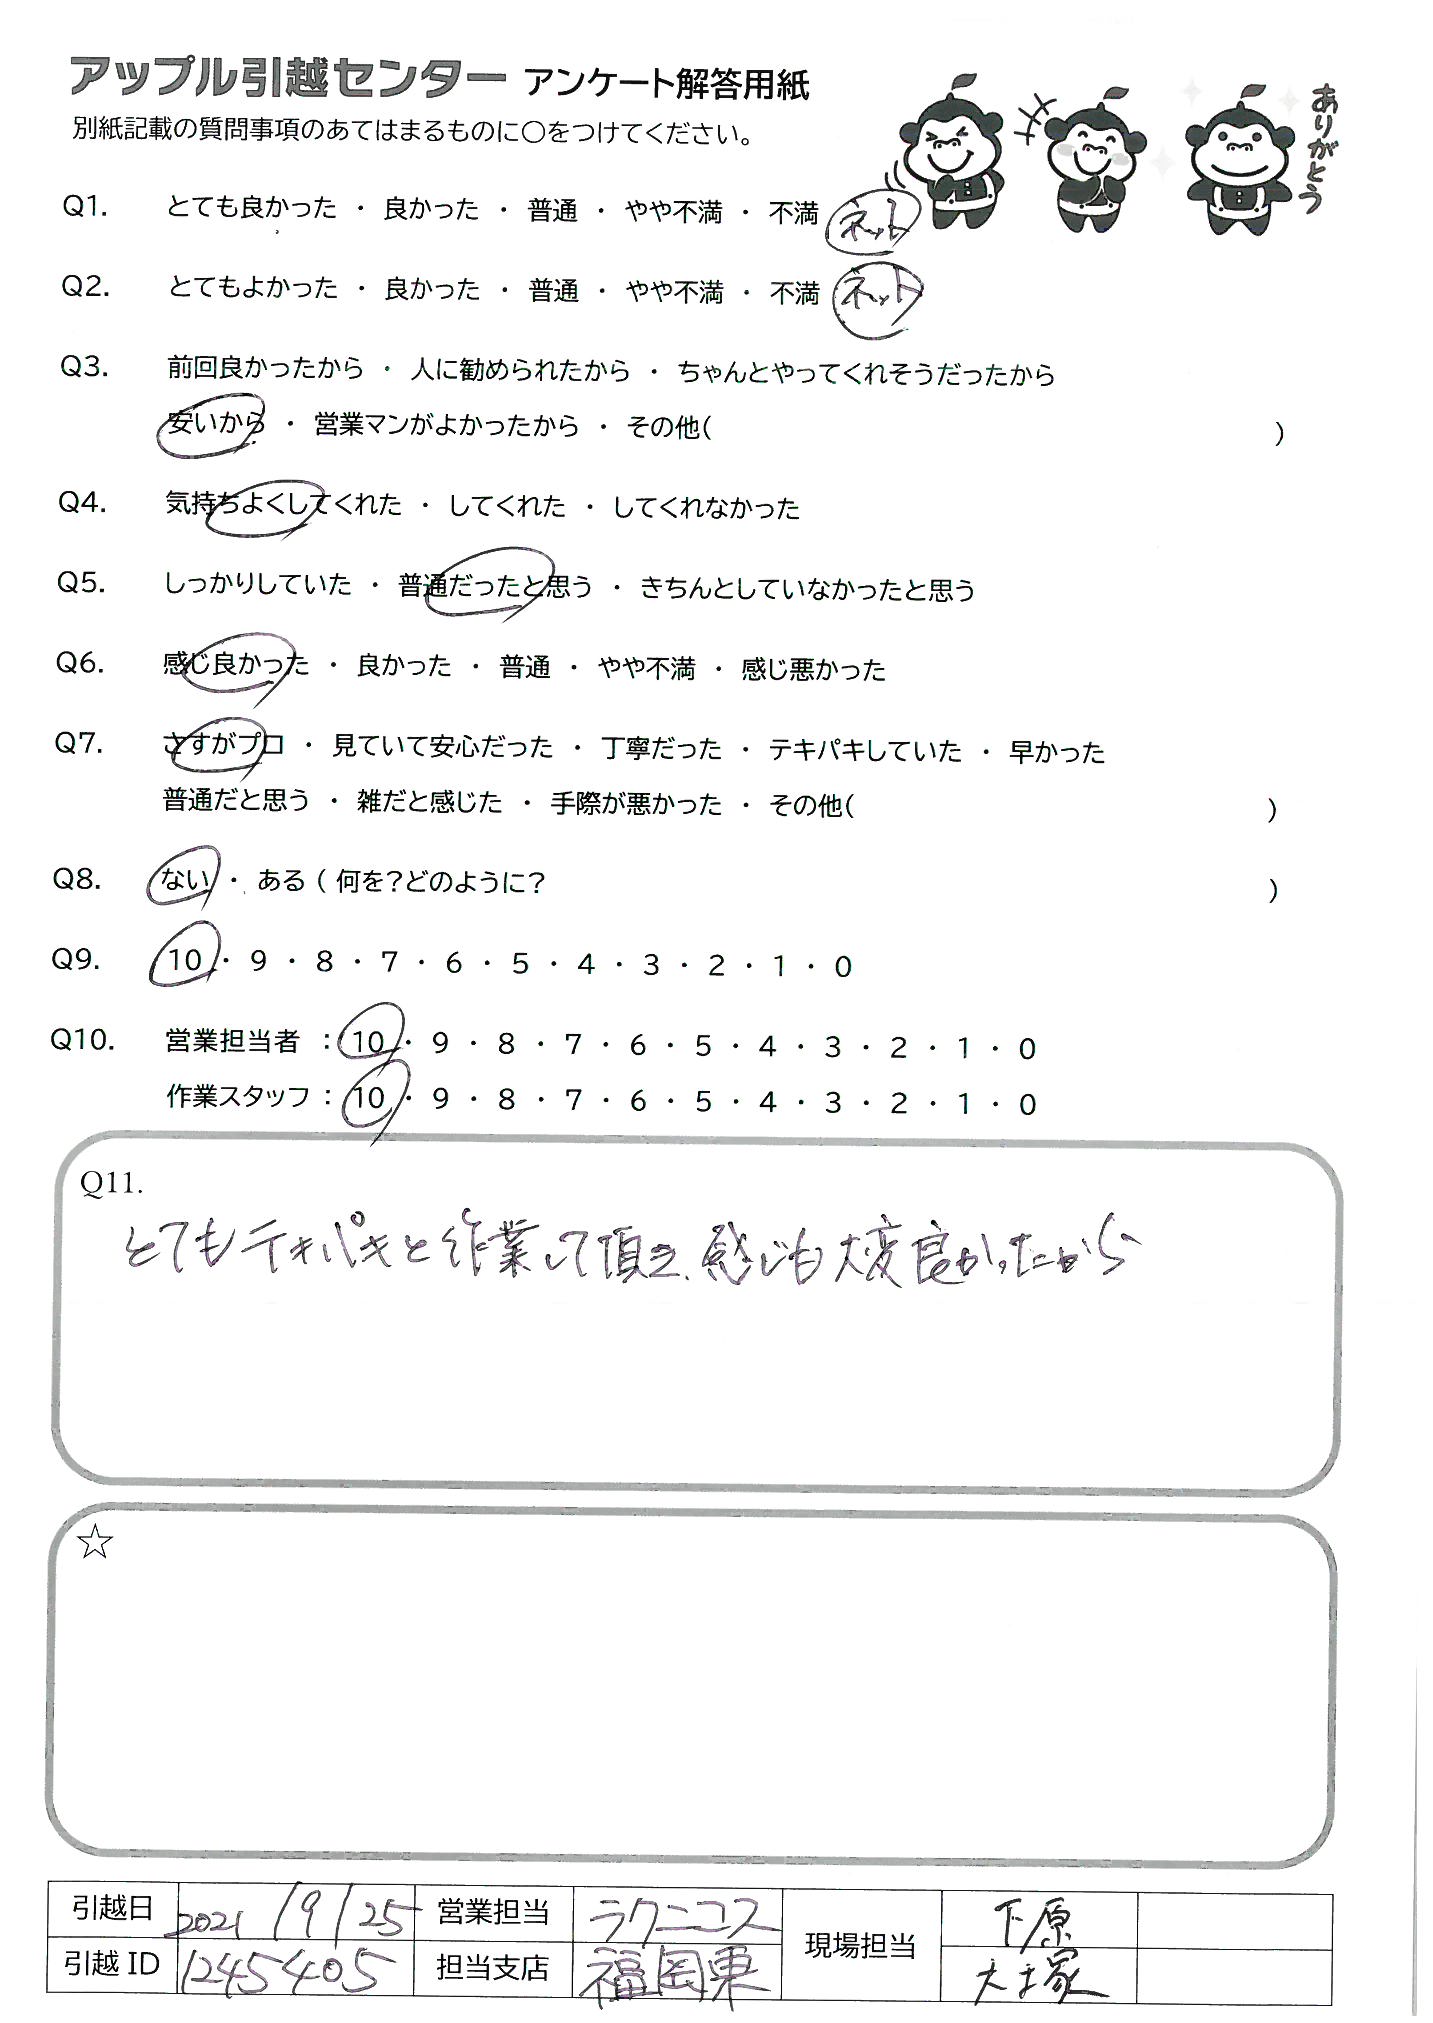 アップル引越センター アンケート解答用紙
別紙記載の質問事項のあてはまるものに〇をつけてください。
ありがとう
Q1. とても良かった ・ 良かった ・ 普通 ・ やや不満 ・ 不満 ネット
Q2. とてもよかった ・ 良かった ・ 普通 ・ やや不満 ・ 不満 ネット
Q3. 前回良かったから ・ 人に勧められたから ・ ちゃんとやってくれそうだったから
安いから ・ 営業マンがよかったから ・ その他( )
Q4. 気持ちよくしてくれた ・ してくれた ・ してくれなかった
Q5. しっかりしていた ・ 普通だったと思う ・ きちんとしていなかったと思う
Q6. 感じ良かった ・ 良かった ・ 普通 ・ やや不満 ・ 感じ悪かった
Q7. さすがプロ ・ 見ていて安心だった ・ 丁寧だった ・ テキパキしていた ・ 早かった
普通だと思う ・ 雑だと感じた ・ 手際が悪かった ・ その他( )
Q8. ない ・ ある ( 何を?どのように? )
Q9. 10 ・ 9 ・ 8 ・ 7 ・ 6 ・ 5 ・ 4 ・ 3 ・ 2 ・ 1 ・ 0
Q10. 営業担当者 : 10 ・ 9 ・ 8 ・ 7 ・ 6 ・ 5 ・ 4 ・ 3 ・ 2 ・ 1 ・ 0
作業スタッフ : 10 ・ 9 ・ 8 ・ 7 ・ 6 ・ 5 ・ 4 ・ 3 ・ 2 ・ 1 ・ 0
Q11.
とてもテキパキと作業して頂き、感じも大変良かったから
☆
引越日 2021/9/25 営業担当 ラクニコス 現場担当 下原
引越 ID 1245405 担当支店 福岡東 大塚